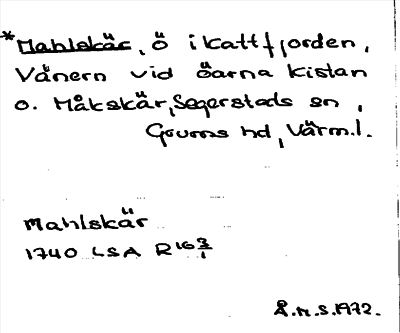 *Mahlskär, ö i Kattfjorden,
Vänern vid öarna Kistan
o. Måkskär, Segerstads sn,
Grums hd, Värml.
Mahlskär
1740 LSA R16 3/1
Å.H.S. 1972.